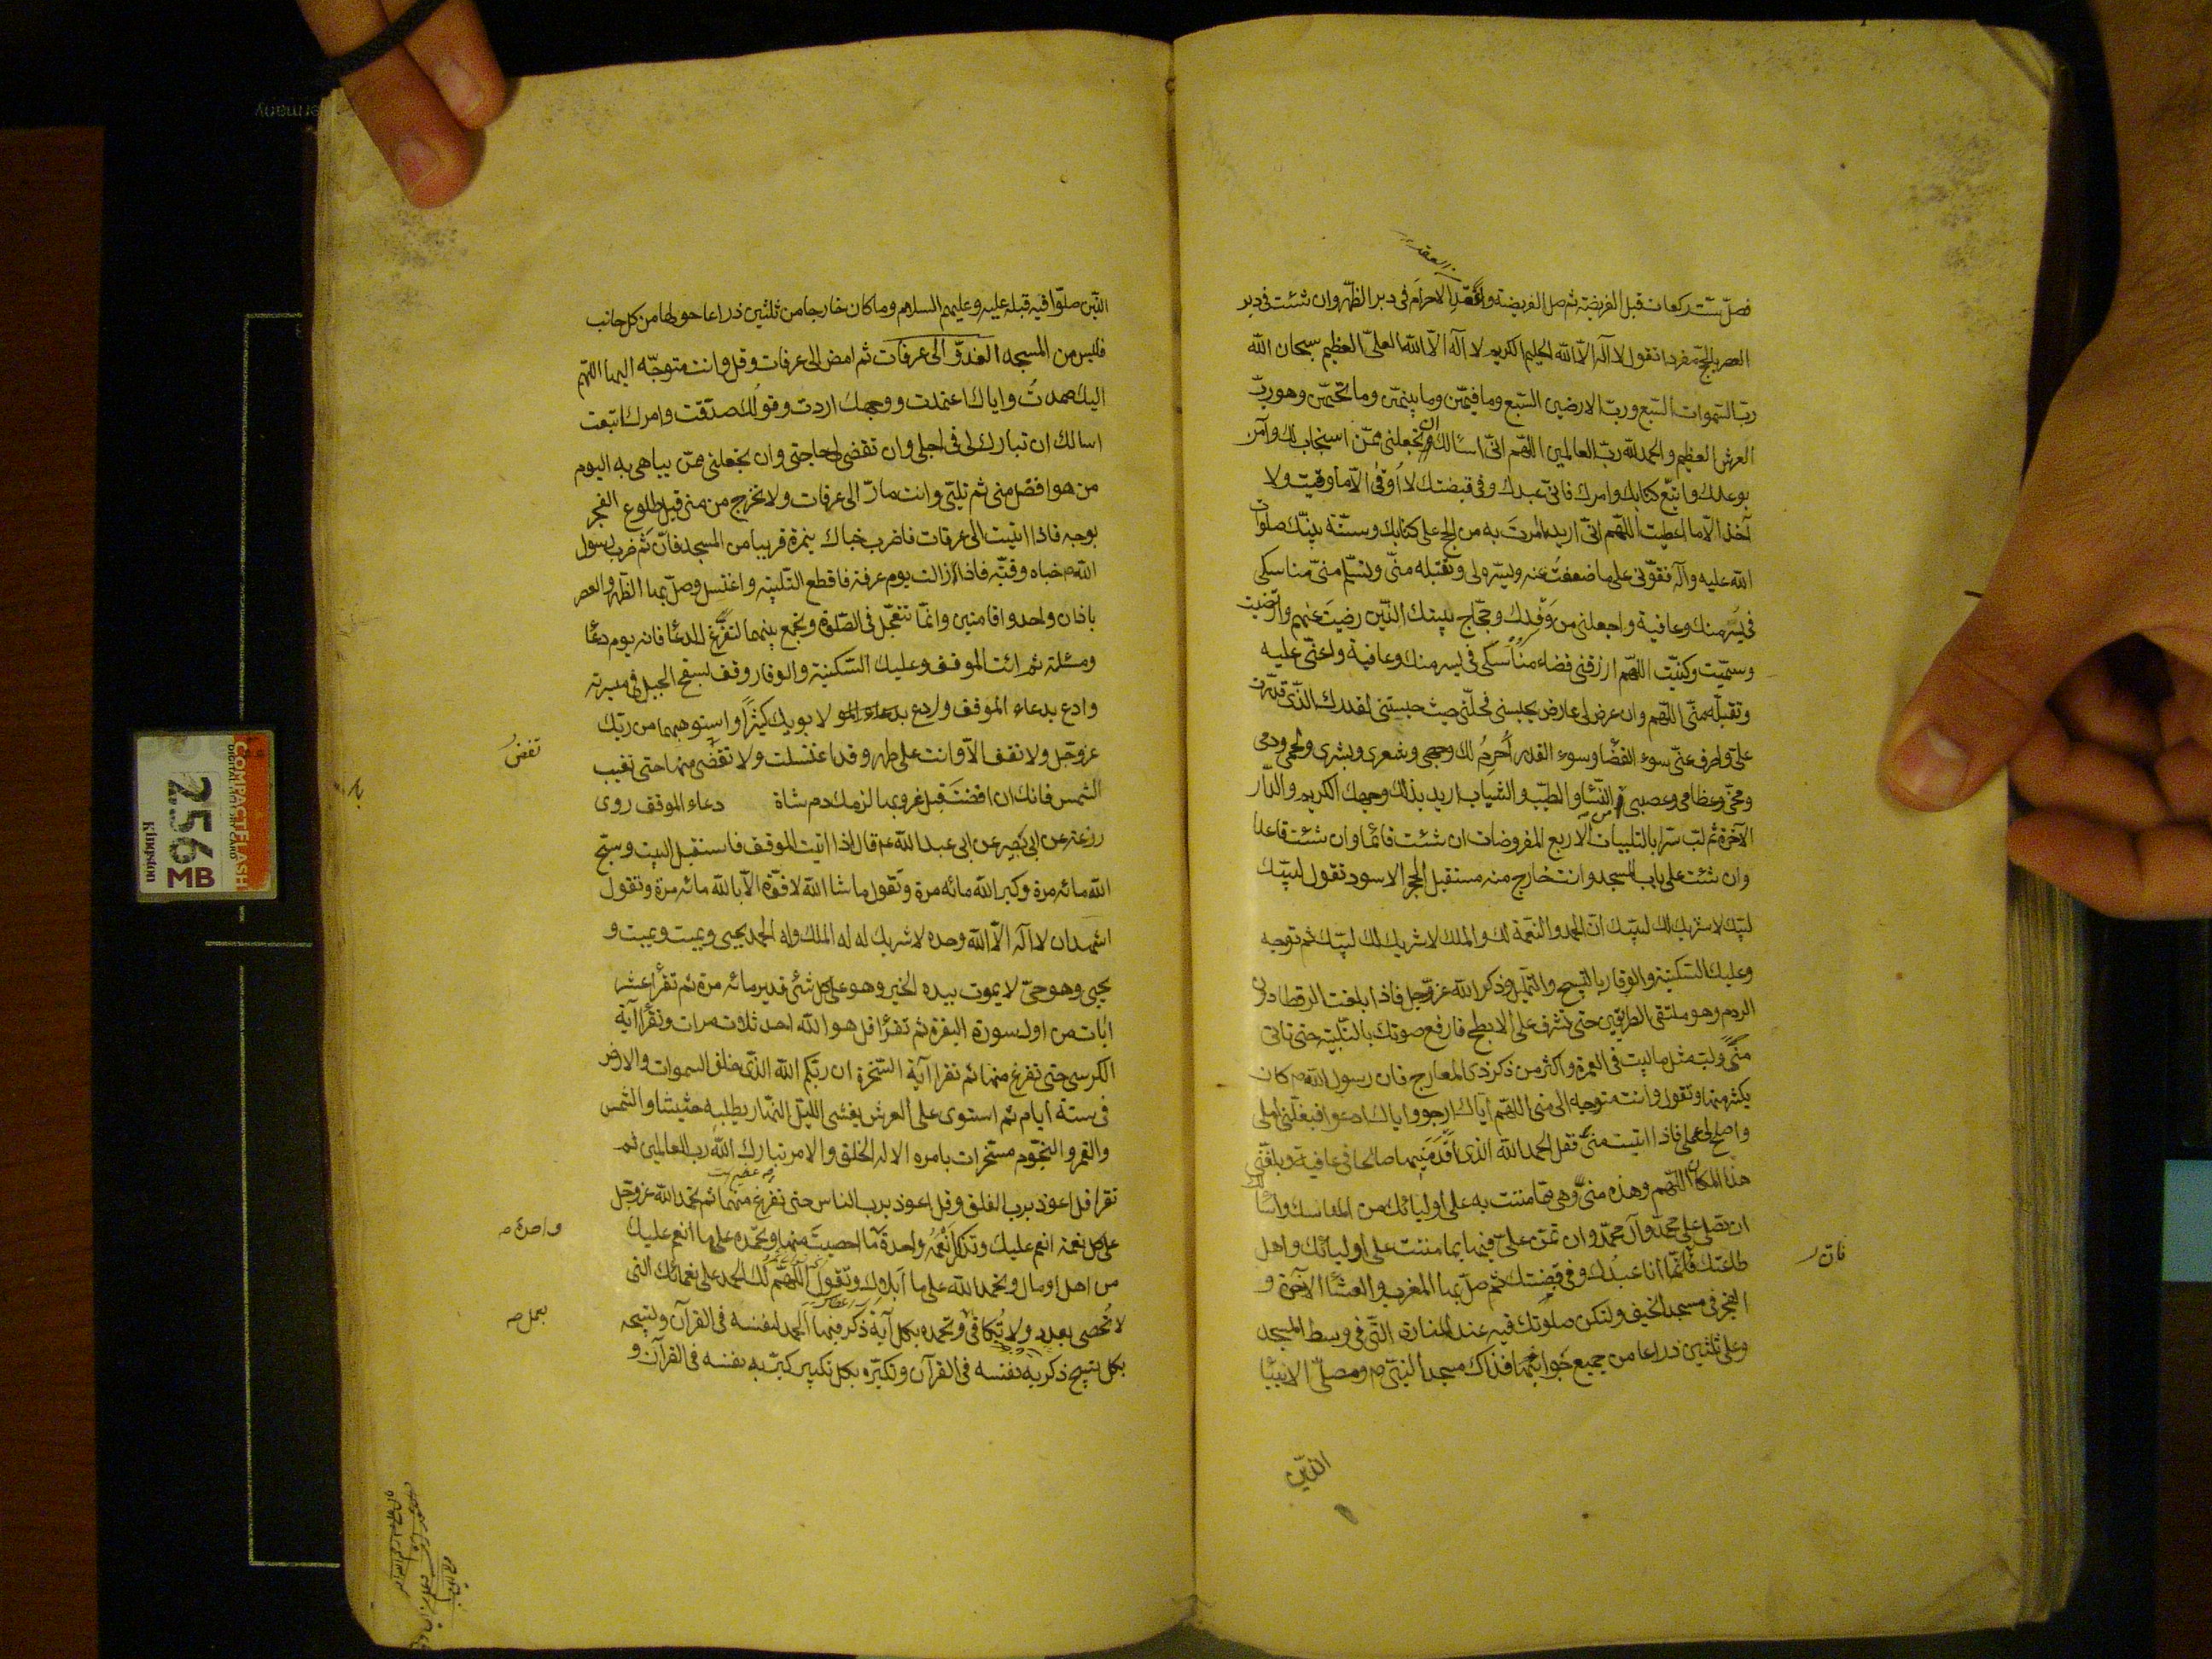 فصل ست ركعات قبل الفريضة ثم صل الفريضة واعقد الاحرام فى دبر الظهر وان شئت فى دبر
العصر بالحج مفردا تقول لا اله الا الله الحليم الكريم لا اله الا الله العلى العظيم سبحان الله
رب السموات السبع ورب الارضين السبع وما فيهن وما بينهن وما تحتهن وهو رب
العرش العظيم والحمد لله رب العالمين اللهم انى اسألك ان تجعلنى ممن استجاب لك وآمن
بوعدك واتبع كتابك وامرك فانى عبدك وفى قبضتك لا اُوقى الا ما وقيت ولا
آخذ الا ما اعطيت اللهم انى اريد ما امرت به من الحج على كتابك وسنة نبيك صلوات
الله عليه وآله فقونى على ما ضعفت عنه ويسره لى وتقبله منى وتسلم منى مناسكى
فى يسر منك وعافية واجعلنى من وفدك وحجاج بيتك الذين رضيت عنهم وارتضيت
وسميت وكنيت اللهم ارزقنى قضاء مناسكى فى يسر منك وعافية واعنى عليه
وتقبله منى اللهم وان عرض لى عارض يحبسنى فحلنى حيث حبستنى لقدرك الذى قدرت
على واصرف عنى سوء القضا وسوء القدر اُحرم لك وجهى وشعرى وبشرى ولحمى ودمى
ومخى وعظامى وعصبى من النسا والطيب والثياب اريد بذلك وجهك الكريم والدار
الآخرة ثم لب سرا بالتلبيات الاربع المفروضات ان شئت قائما وان شئت قاعدا
وان شئت على باب المسجد وانت خارج منه مستقبل الحجر الاسود تقول لبيك
لبيك لا شريك لك لبيك ان الحمد والنعمة لك والملك لا شريك لك لبيك ثم توجه
وعليك السكينة والوقار بالتسبيح والتهليل وذكر الله عز وجل فاذا بلغت الرقطا دون
الردم وهو ملتقى الطريقين حتى تشرف على الابطح فارفع صوتك بالتلبية حتى تاتى
منى ولب مثل ما لبيت فى العمرة واكثر من ذكر ذى المعارج فان رسول الله ص كان
يكثر منها وتقول وانت متوجه الى منى اللهم اياك ارجو واياك ادعو فبلغنى املى
واصلح لى عملى فاذا اتيت منى فقل الحمد لله الذى اقدمنيها صالحا فى عافية وبلغنى
هذا المكان اللهم وهذه منى وهى مما مننت به على اوليائك من المناسك واسألك
ان تصلى على محمد وآل محمد وان تمن على فيها بما مننت على اوليائك واهل
طاعتك فانما انا عبدك وفى قبضتك ثم صل بها المغرب والعشا الآخرة و
الفجر فى مسجد الخيف ولتكن صلوتك فيه عند المنارة التى فى وسط المسجد
وعلى ثلثين ذراعا من جميع جوانبها فذاك مسجد النبى ص ومصلى الانبيا
الذين
العقد
فان
الذين صلوا فيه قبله عليه وعليهم السلام وما كان خارجا من ثلثين ذراعا حولها من كل جانب
فليس من المسجد الغدو الى عرفات ثم امض الى عرفات وقل وانت متوجه اليها اللهم
اليك صمدت واياك اعتمدت ووجهك اردت وقولك صدقت وامرك اتبعت
اسالك ان تبارك لى فى اجلى وان تقضى لى حاجتى وان تجعلنى ممن يباهى به اليوم
من هو افضل منى ثم تلبى وانت مار الى عرفات ولا تخرج من منى قبل طلوع الفجر
بوجه فاذا اتيت الى عرفات فاضرب خباك بنمرة قريبا من المسجد فان ثم ضرب رسول
الله ص خباه وقبته فاذا زالت يوم عرفة فاقطع التلبية واغتسل وصل بها الظهر والعصر
باذان واحد واقامتين وانما تتعجل فى الصلوة وتجمع بينهما لتفرغ للدعا فانه يوم دعا
ومسئلة ثم ائت الموقف وعليك السكينة والوقار وقف بسفح الجبل فى ميسرته
وادع بدعاء الموقف وادع بدعاء الموقف لابويك كثيرا واستوهبهما من ربك
عز وجل ولا تقف الا وانت على طهر وقد اغتسلت ولا تفض منها حتى تغيب
الشمس فانك ان افضت قبل غروبها لزمك دم شاة دعاء الموقف روى
زرعة عن ابى بصير عن ابى عبد الله ع قال اذا اتيت الموقف فاستقبل البيت وسبح
الله مائه مرة وكبر الله مائه مرة وتقول ما شا الله لا قوة الا بالله مائه مرة وتقول
اشهد ان لا اله الا الله وحده لا شريك له له الملك وله الحمد يحيى ويميت ويميت و
يحيى وهو حى لا يموت بيده الخير وهو على كل شئ قدير مائه مرة ثم تقرأ عشر
ايات من اول سورة البقرة ثم تقرأ قل هو الله احد ثلاث مرات وتقرأ آية
الكرسى حتى تفرغ منها ثم تقرا آية السخرة ان ربكم الله الذى خلق السموات والارض
فى ستة ايام ثم استوى على العرش يغشى الليل النهار يطلبه حثيثا والشمس
والقمر والنجوم مسخرات بامره الا له الخلق والامر تبارك الله رب العالمين ثم
تقرا قل اعوذ برب الفلق وقل اعوذ برب الناس حتى تفرغ منهما ثم تحمد الله عز وجل
على كل نعمة انعم عليك وتذكر انعمه واحدة ما احصيت منها وتحمده على ما انعم عليك
من اهل او مال وتحمد الله على ما ابلاك وتقول اللهم لك الحمد على نعمائك التى
لا تحصى بعدد ولا تكافى وتحمده بكل آية ذكر فيها الحمد لنفسه فى القرآن وتسبحه
بكل تسبيح ذكر به نفسه فى القرآن وتكبره بكل تكبير كبر به نفسه فى القرآن و
تفض
واحدة ص
بعمل ص
COMPACTFLASH
256 MB
Kingston